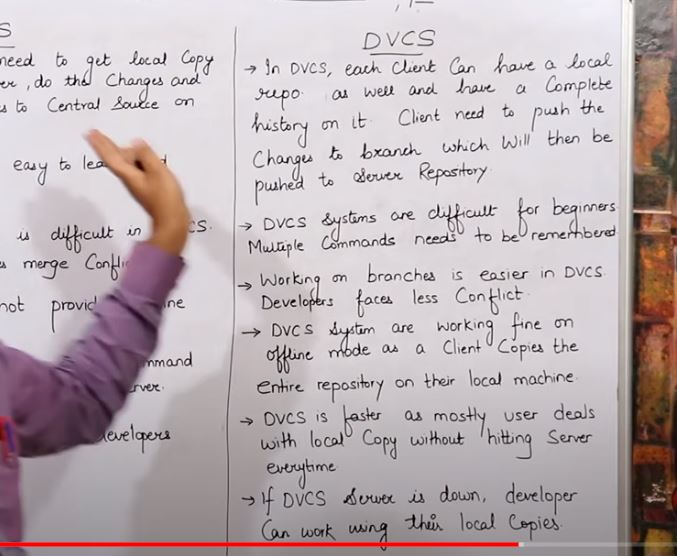 S
need to get local Copy
er, do the Changes and
es to Central Source on
easy to lea
is difficult in CS.
merge Confli
not provid ine
mmand
rver.
evelopers
DVCS
→ In DVCS, each Client Can have a local
repo. as well and have a Complete
history on it. Client need to push the
Changes to branch which Will then be
pushed to Server Repository.
→ DVCS Systems are difficult for beginners.
Multiple Commands needs to be remembered
→ Working on branches is easier in DVCS.
Developers faces less Conflict.
→ DVCS System are working fine on
offline mode as a Client Copies the
entire repository on their local machine.
→ DVCS is faster as mostly user deals
with local Copy without hitting Server
everytime.
→ If DVCS Server is down, developer
Can work using their local Copies.